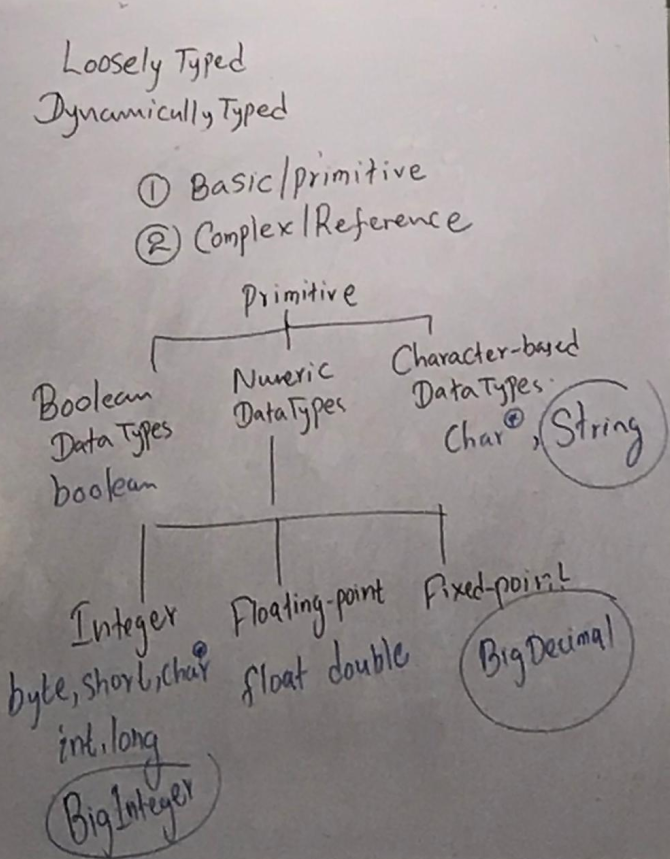 Loosely Typed
Dynamically Typed
① Basic/primitive
② Complex/Reference
Primitive
Boolean
Data Types
boolean
Numeric
DataTypes
Character-based
DataTypes.
Char*, String
Integer
byte, short, char*
int, long
BigInteger
Floating-point
float double
Fixed-point
BigDecimal